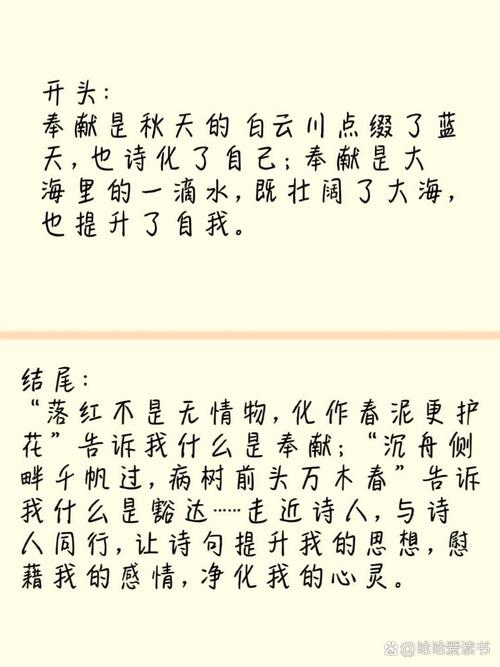 开头:
奉献是秋天的白云川点缀了蓝
天,也诗化了自己;奉献是大
海里的一滴水,既壮阔了大海,
也提升了自我。
结尾:
“落红不是无情物,化作春泥更护
花”告诉我什么是奉献;“沉舟侧
畔千帆过,病树前头万木春”告诉
我什么是豁达……走近诗人,与诗
人同行,让诗句提升我的思想,慰
藉我的感情,净化我的心灵。
@哈哈爱读书